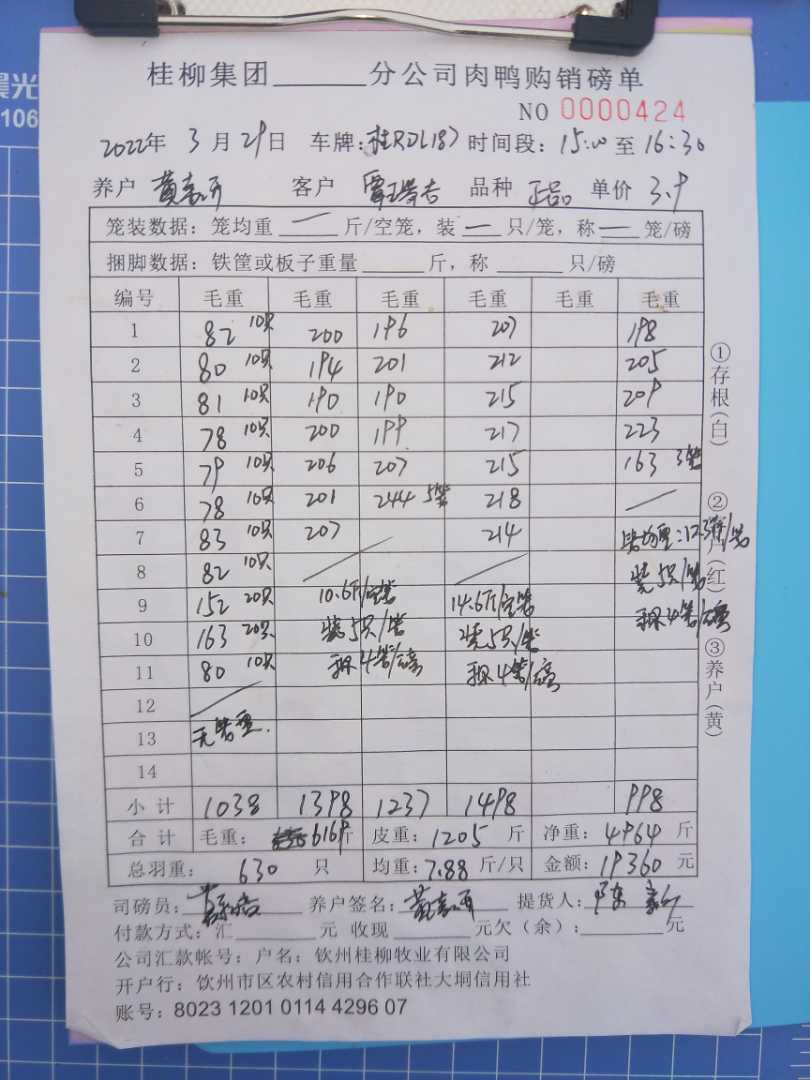 晨光
106
桂柳集团______分公司肉鸭购销磅单
NO 0000424
2022年 3 月 29日 车牌:桂RDL187 时间段: 15:00 至 16:30
养户 黄 客户 品种 正品 单价 3.9
笼装数据: 笼均重 — 斤/空笼, 装 — 只/笼, 称 — 笼/磅
捆脚数据: 铁筐或板子重量 ______ 斤, 称 ______ 只/磅
编号 毛重 毛重 毛重 毛重 毛重 毛重
1 82 10只 200 196 207 198
2 80 10只 194 201 212 205
3 81 10只 190 190 215 209
4 78 10只 200 199 217 223
5 79 10只 206 207 215 163 3笼
6 78 10只 201 244 5笼 218
7 83 10只 207 214 笼均重:12.3斤/笼
8 82 10只 装5只/笼
9 152 20只 10.6斤/空笼 14.6斤/空笼 称4笼/磅
10 163 20只 装5只/笼 装5只/笼
11 80 10只 称4笼/磅 称4笼/磅
12
13 无笼重.
14
小计 1038 1398 1237 1498 998
合计 毛重: 6169 斤 皮重: 1205 斤 净重: 4964 斤
总羽重: 630 只 均重: 7.88 斤/只 金额: 19360 元
司磅员: 养户签名: 黄 提货人: 陈
付款方式: 汇______元 收现______元欠(余):______元
公司汇款帐号: 户名: 钦州桂柳牧业有限公司
开户行: 钦州市区农村信用合作联社大垌信用社
账号: 8023 1201 0114 4296 07
①存根(白) ②户(红) ③养户(黄)